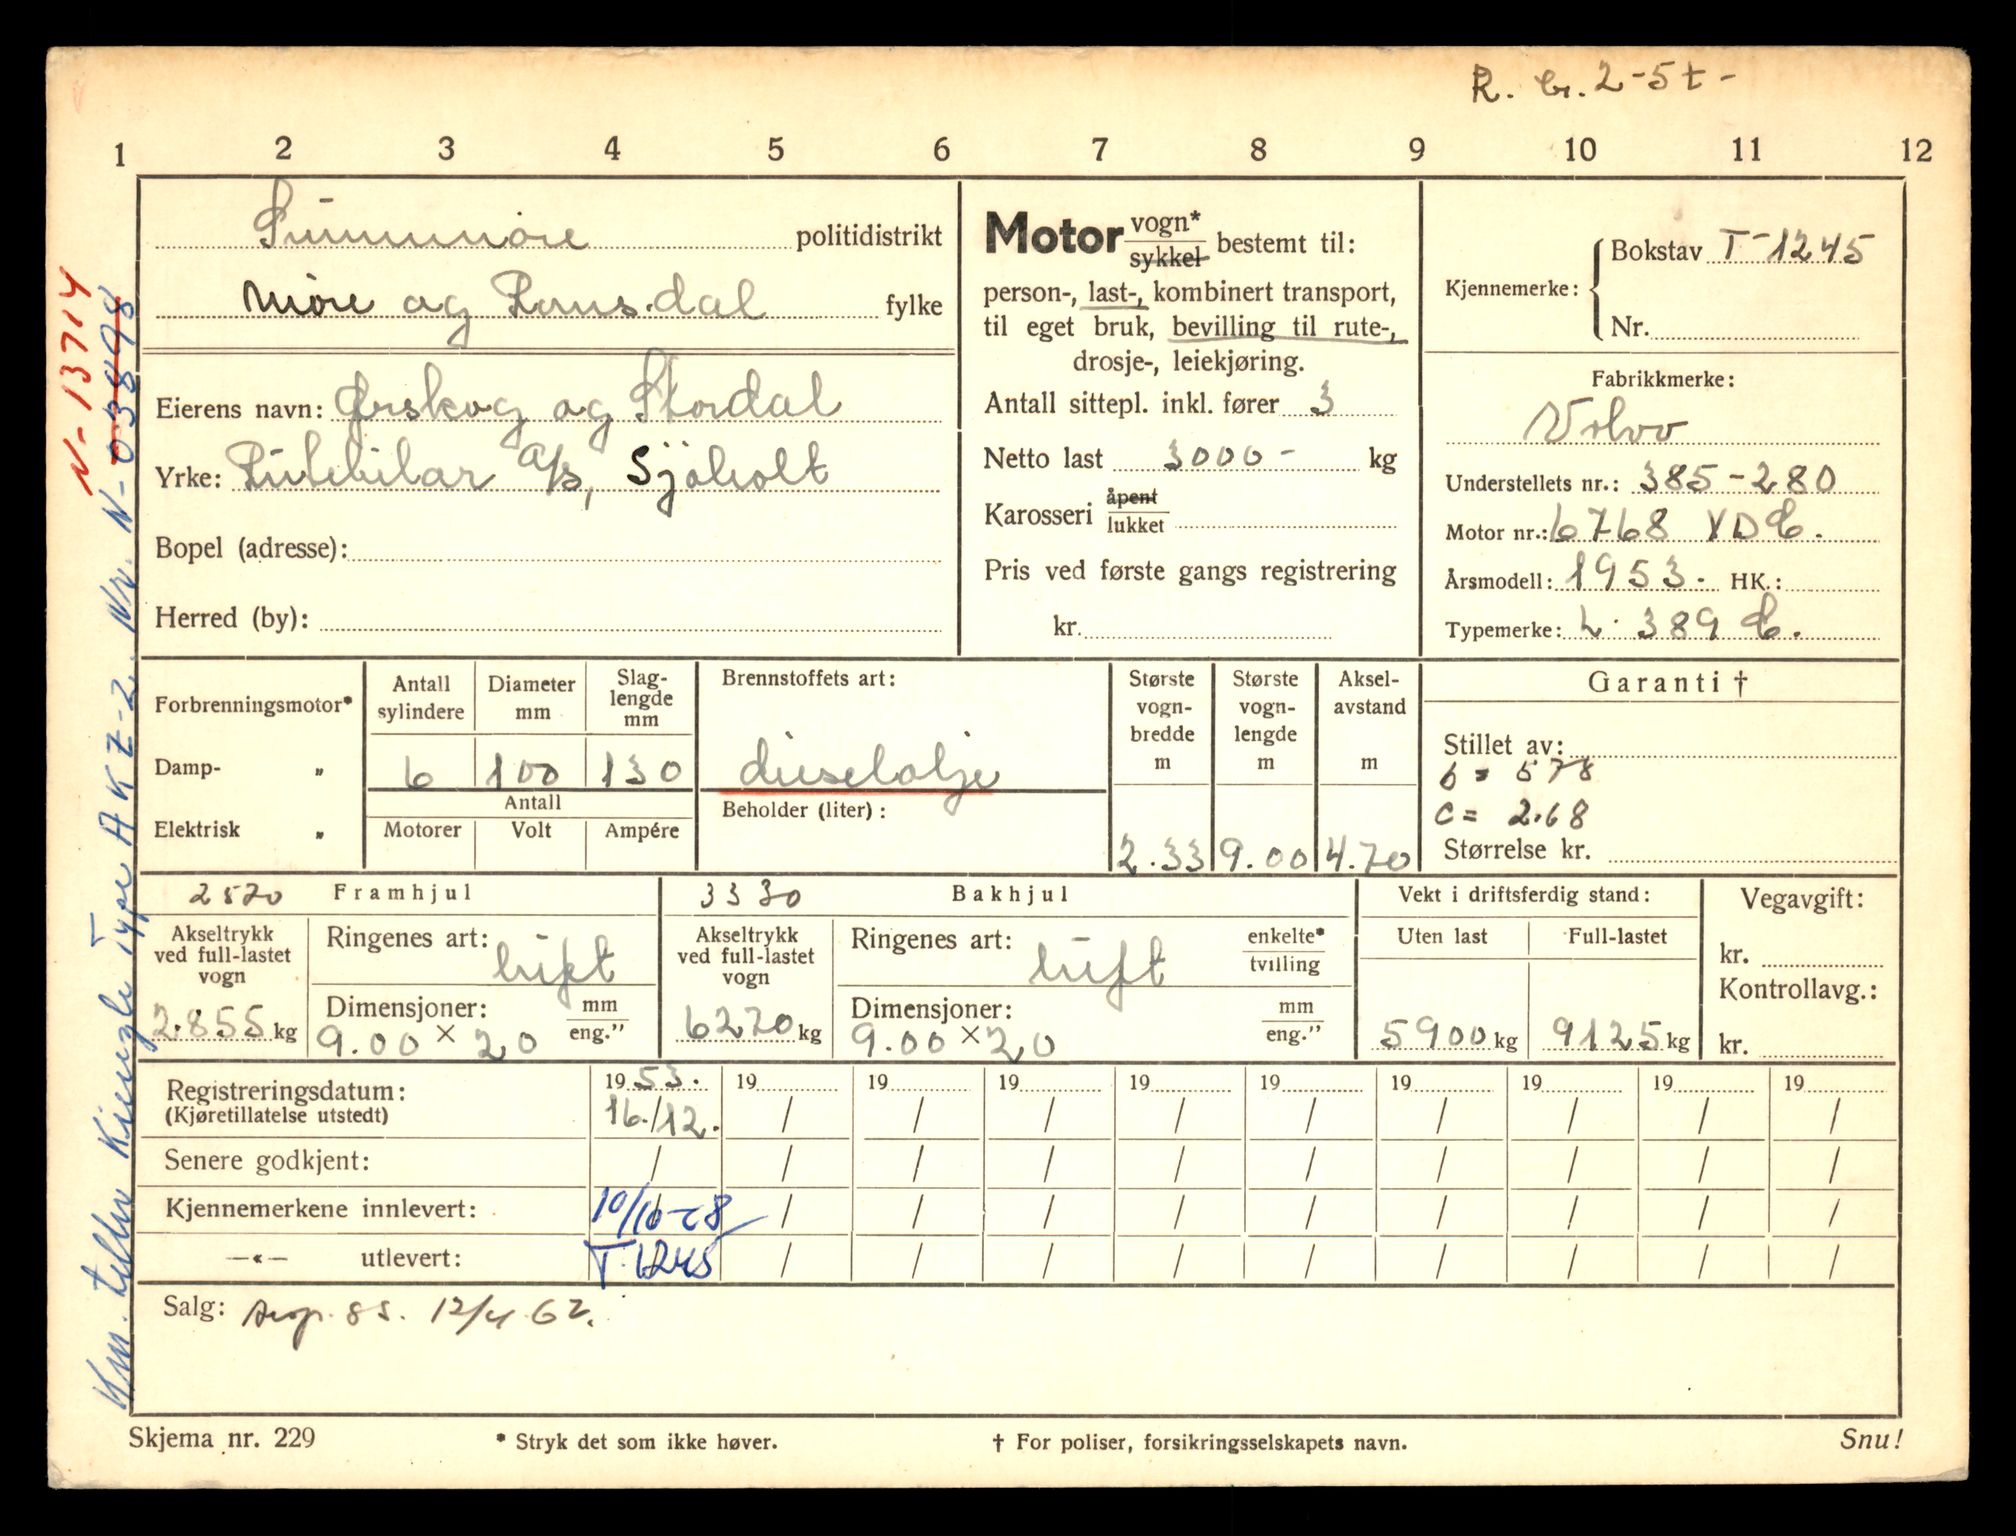 R. br. 2-5t-
1 2 3 4 5 6 7 8 9 10 11 12
Sunnmøre politidistrikt
Møre og Romsdal fylke
Eierens navn: Ørskog og Stordal
Yrke: Rutebilar A/s, Sjøholt
Bopel (adresse):
Herred (by):
Motor vogn* sykkel bestemt til:
person-, last-, kombinert transport,
til eget bruk, bevilling til rute-,
drosje-, leiekjøring.
Antall sittepl. inkl. fører 3
Netto last 3000- kg
Karosseri åpent lukket
Pris ved første gangs registrering
kr.
Kjennemerke: Bokstav T-1245
Nr.
Fabrikkmerke:
Volvo
Understellets nr.: 385-280
Motor nr.: 6768 VDC.
Årsmodell: 1953. HK.:
Typemerke: L. 389 C.
Forbrenningsmotor*
Damp- „
Elektrisk „
Antall sylindere
6
Diameter mm
100
Slaglengde mm
130
Antall
Motorer Volt Ampére
Brennstoffets art:
dieselolje
Beholder (liter):
Største vognbredde m
2.33
Største vognlengde m
9.00
Akselavstand m
4.70
Garanti †
Stillet av:
b = 578
c = 2.68
Størrelse kr.
2570 Framhjul
Akseltrykk ved full-lastet vogn
2.855 kg
Ringenes art: luft
Dimensjoner: mm eng."
9.00 × 20
3330 Bakhjul
Akseltrykk ved full-lastet vogn
6270 kg
Ringenes art: luft enkelte* tvilling
Dimensjoner: mm eng."
9.00 × 20
Vekt i driftsferdig stand:
Uten last Full-lastet
5900 kg 9125 kg
Vegavgift:
kr.
Kontrollavg.:
kr.
Registreringsdatum: 1953. 19 19 19 19 19 19 19 19 19
(Kjøretillatelse utstedt) 16./12. / / / / / / / / /
Senere godkjent: / / / / / / / / / /
Kjennemerkene innlevert: 10/10-58 / / / / / / / / /
—«— utlevert: T.1245 / / / / / / / / /
Salg: 85. 12/4.62.
Skjema nr. 229
* Stryk det som ikke høver.
† For poliser, forsikringsselskapets navn.
Snu!
Km. teller Kienzle Type AKZ-2. Nr. N-038498
N-13714